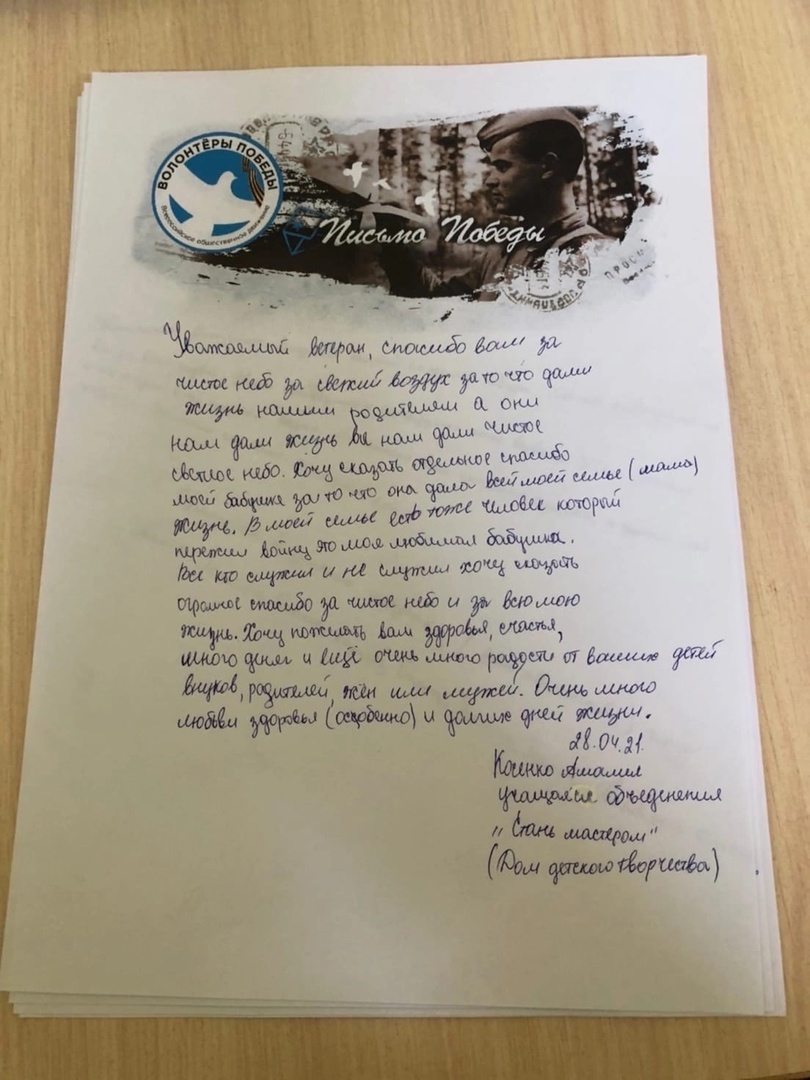 ВОЛОНТЁРЫ ПОБЕДЫ
Всероссийское общественное движение
Письмо Победы
Уважаемый ветеран, спасибо вам за
чистое небо за свежий воздух за то что дали
жизнь нашим родителям а они
нам дали жизнь вы нам дали чистое
светлое небо. Хочу сказать отдельное спасибо
моей бабушке за то что она дала всей моей семье (мама)
жизнь. В моей семье есть тоже человек который
пережил войну это моя любимая бабушка.
Все кто служил и не служил хочу сказать
огромное спасибо за чистое небо и за всю мою
жизнь. Хочу пожелать вам здоровья, счастья,
много денег и ещё очень много радости от ваших детей
внуков, родителей, жён или мужей. Очень много
любви здоровья (особенно) и долгих дней жизни.
28.04.21.
Косенко Амалия
учащаяся объеденения
"Стань мастером"
(Дом детского творчества)